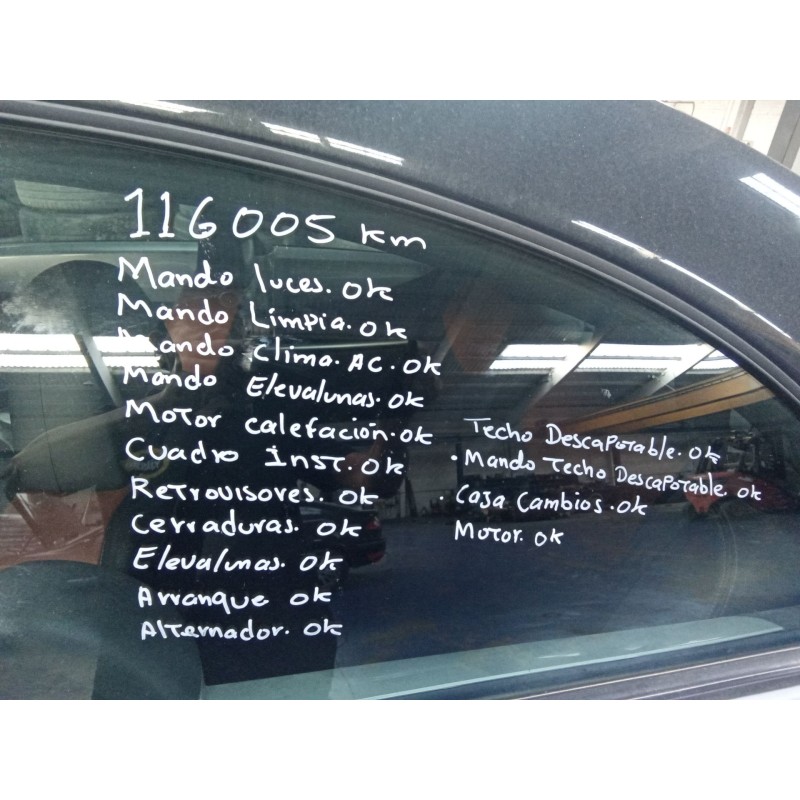 116005 km
Mando luces. ok
Mando Limpia. ok
Mando Clima. AC. ok
Mando Elevalunas. ok
Motor calefación. ok
Cuadro Inst. ok
Retrovisores. ok
Cerraduras. ok
Elevalunas. ok
Arranque ok
Alternador. ok
Techo Descapotable. ok
· Mando Techo Descapotable. ok
· Caja Cambios. ok
Motor. ok